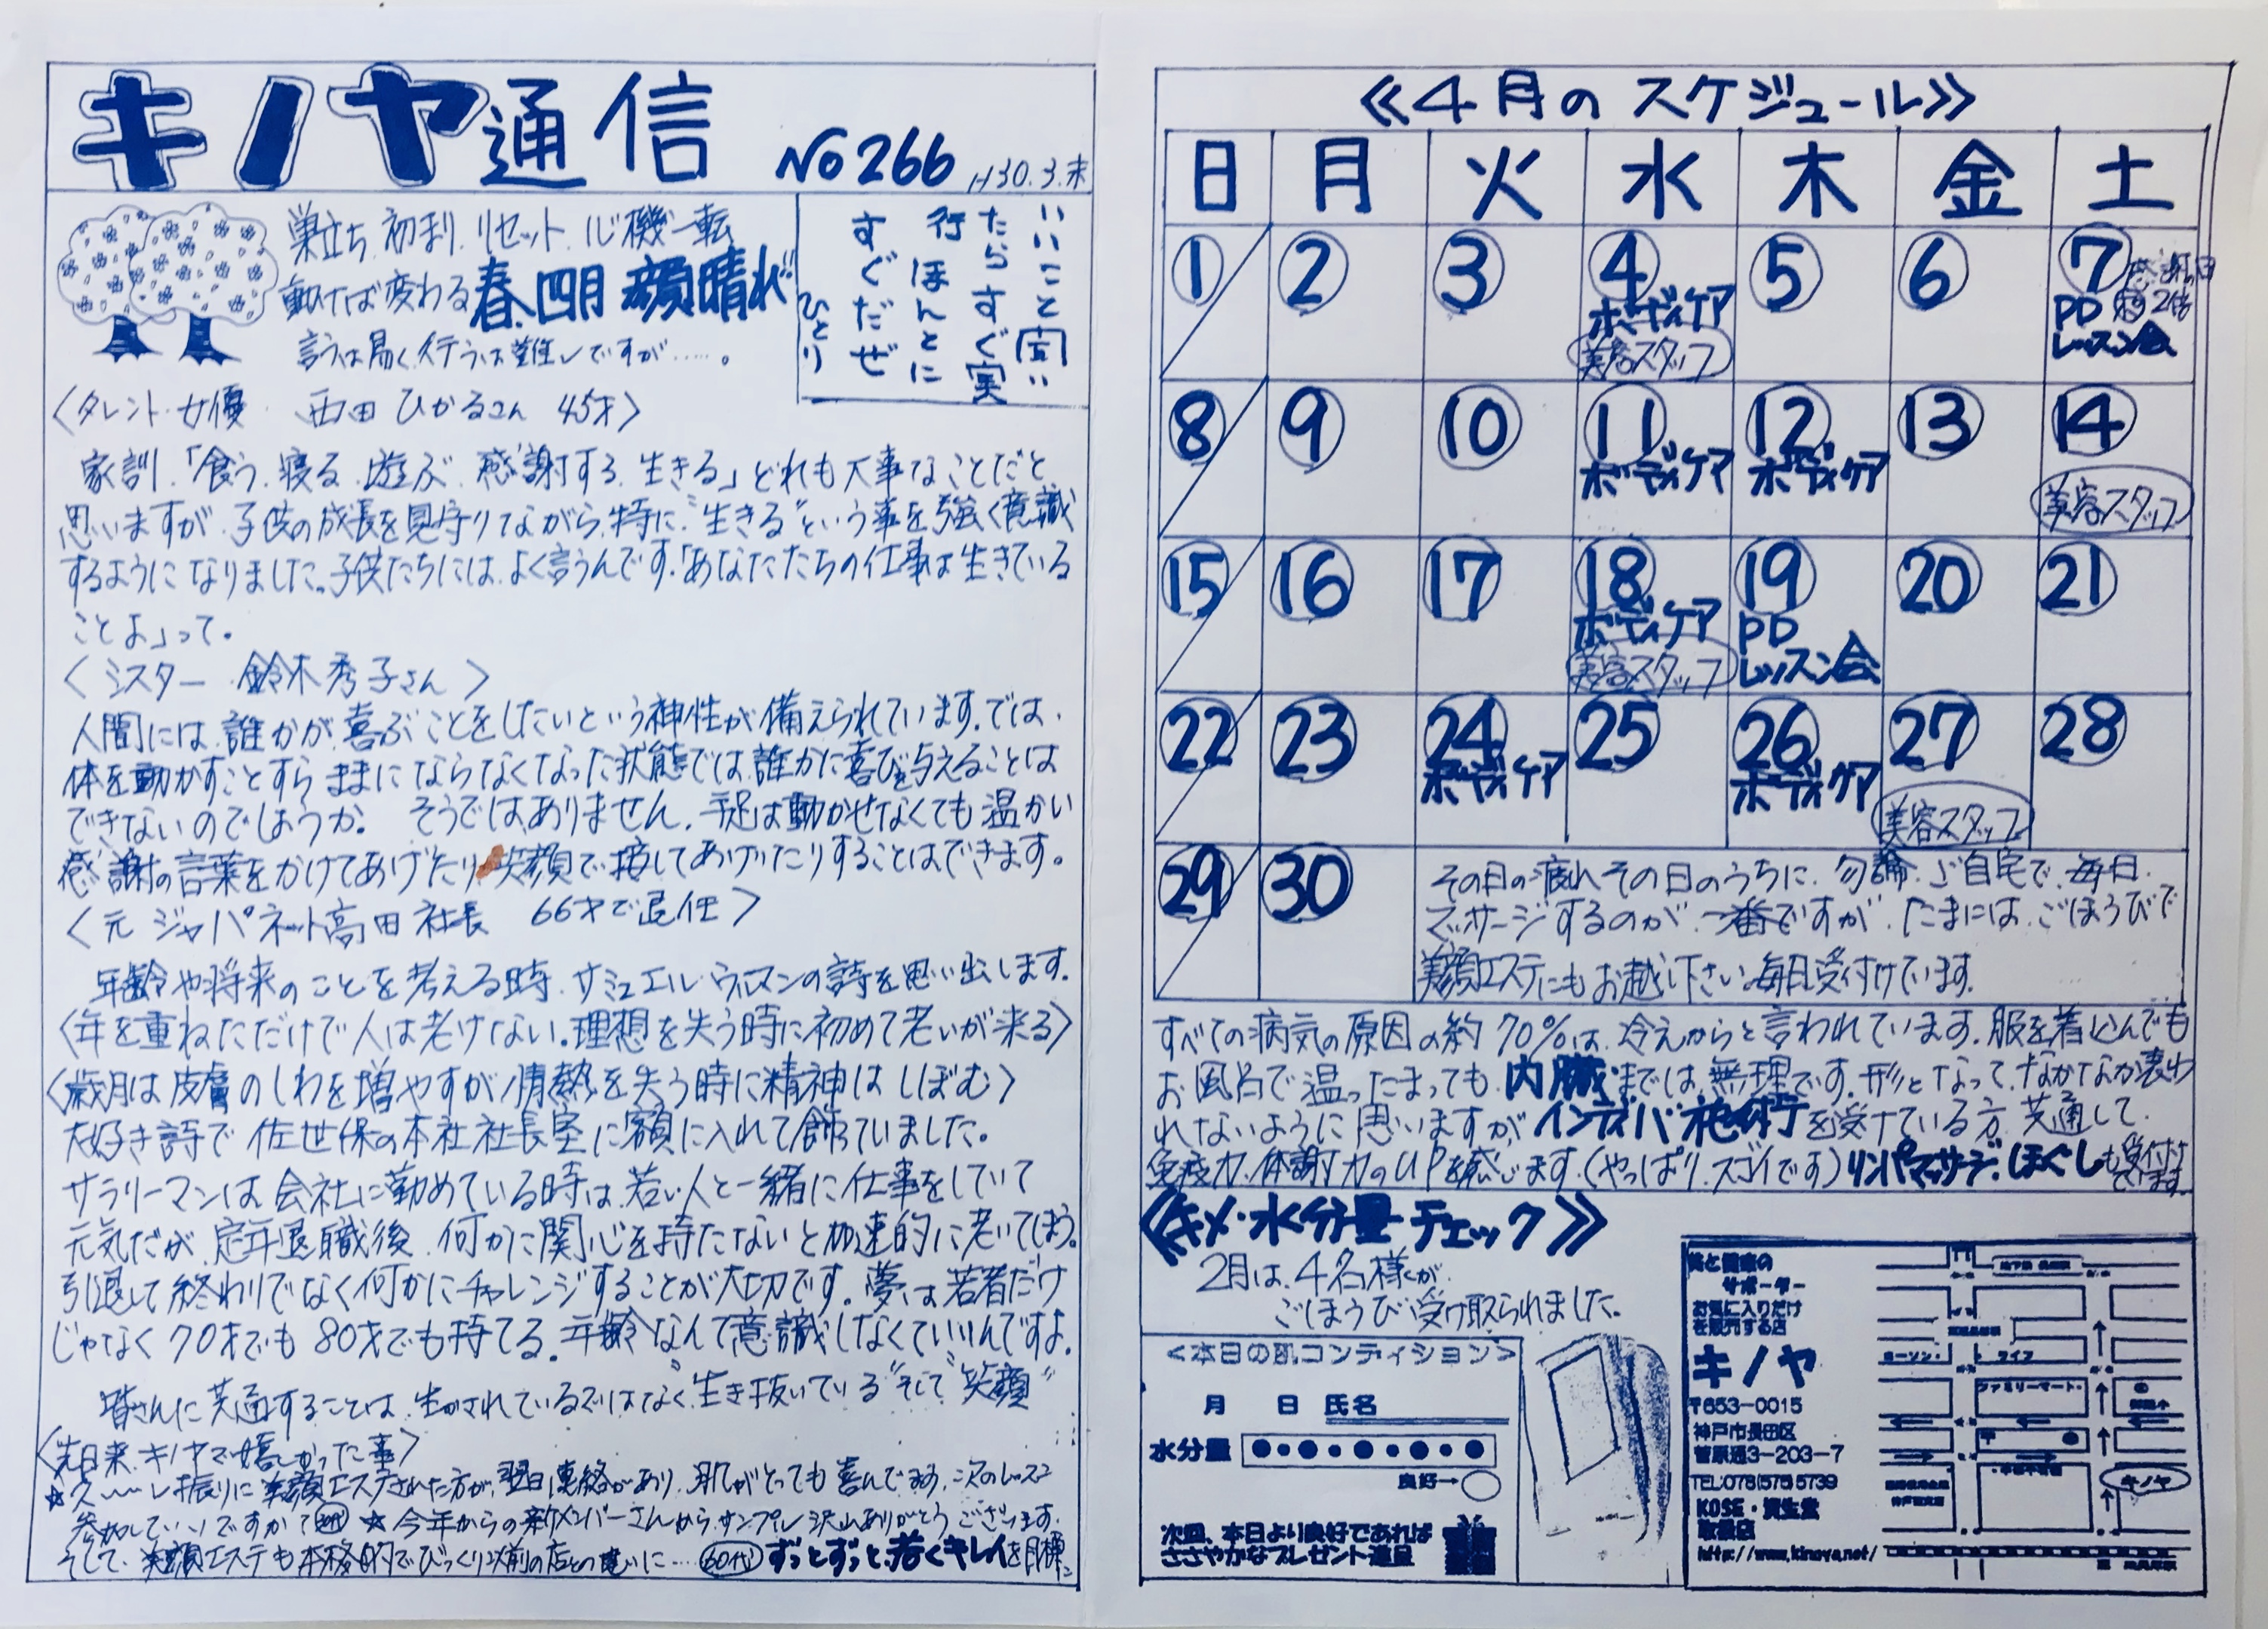 キノヤ通信 No266 H30.3.末
巣立ち 初まり リセット 心機一転
動けば変わる 春、四月 顔晴れ
言うは易く 行うは難しですが……。
いいこと聞い
たらすぐ実
行 ほんとに
すぐだぜ
ひとり
〈タレント・女優 西田ひかるさん 45才〉
家訓「食う、寝る、遊ぶ、感謝する、生きる」どれも大事なことだと
思いますが、子供の成長を見守りながら、特に"生きる"という事を強く意識
するようになりました。子供たちには、よく言うんです。「あなたたちの仕事は生きている
ことよ」って。
〈シスター 鈴木秀子さん〉
人間には、誰かが喜ぶことをしたいという神性が備えられています。では、
体を動かすことすらままにならなくなった状態では、誰かに喜びを与えることは
できないのでしょうか。 そうではありません。手足は動かせなくても温かい
感謝の言葉をかけてあげたり、笑顔で接してあげたりすることはできます。
〈元 ジャパネット高田社長 66才で退任〉
年齢や将来のことを考える時、サミュエル・ウルマンの詩を思い出します。
〈年を重ねただけで人は老けない。理想を失う時に初めて老いが来る〉
〈歳月は皮膚のしわを増やすが、情熱を失う時に精神はしぼむ〉
大好き詩で 佐世保の本社社長室に額に入れて飾っていました。
サラリーマンは会社に勤めている時は、若い人と一緒に仕事をしていて
元気だが、定年退職後、何かに関心を持たないと加速的に老いてしまう。
引退して終わりでなく何かにチャレンジすることが大切です。夢は若者だけ
じゃなく70才でも80才でも持てる。年齢なんて意識しなくていいんですよ。
皆さんに共通することは、生かされているではなく"生き抜いている"そして"笑顔"
〈先日来、キノヤで嬉しかった事〉
☆久〜〜し振りに美顔エステされた方が、翌日連絡があり、肌がとっても喜んでます。次のレッスン
参加していいですか? ☆今年からの新メンバーさんから、サンプル沢山ありがとうございます。
そして、美顔エステも本格的でびっくり以前の店との違いに…(60代)ずっとずっと若くキレイを目標に
≪4月のスケジュール≫
日 月 火 水 木 金 土
1 2 3 4 5 6 7
感謝の日
2倍
ボディケア
美容スタッフ
PD
レッスン会
8 9 10 11 12 13 14
ボディケア ボディケア
美容スタッフ
15 16 17 18 19 20 21
ボディケア PD
美容スタッフ レッスン会
22 23 24 25 26 27 28
ボディケア ボディケア
美容スタッフ
29 30
その日の疲れその日のうちに、勿論、ご自宅で、毎日、
マッサージするのが、一番ですが、たまには、ごほうびで
美顔エステにもお越し下さい。毎日受付けています。
すべての病気の原因の約70%は、冷えからと言われています。服を着込んでも
お風呂で温ったまっても、内臓までは、無理です。形となって、なかなか表われ
れないように思いますが、インディバ施術を受けている方、共通して、
免疫力、体謝力のUPを感じます。(やっぱり、スゴイです)リンパマッサージ、ほぐしも受付けてます。
≪キメ・水分量チェック≫
2月は、4名様が、
ごほうび受け取られました。
<本日の肌コンディション>
月 日 氏名
水分量
良好→
次回、本日より良好であれば
ささやかなプレゼント進呈
美と健康の
サポーター
お気に入りだけ
を販売する店
キノヤ
〒653-0015
神戸市長田区
菅原通3-203-7
TEL078(575)5739
KOSE・資生堂
取扱店
http://www.kinoya.net/
ローソン・
ライフ
ファミリーマート・
〒
キノヤ